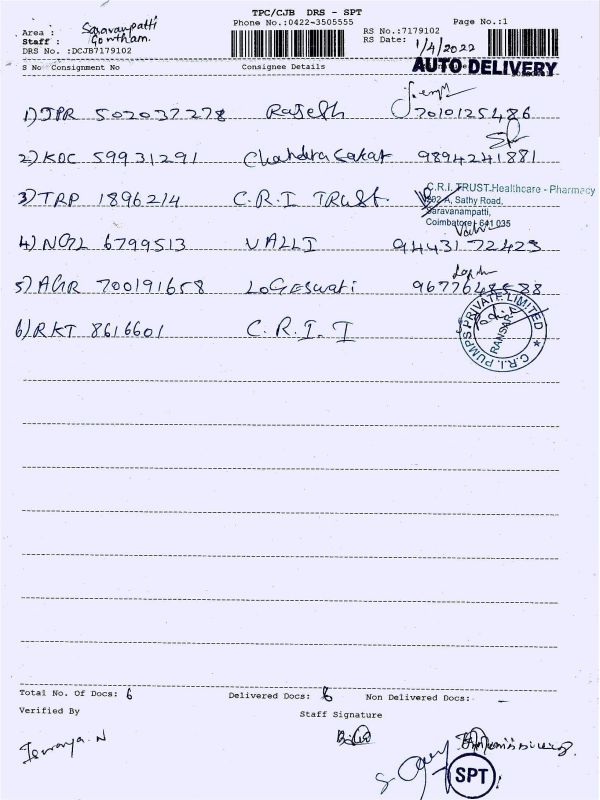 TPC/CJB DRS - SPT
Phone No.:0422-3505555
Page No.:1
Area : Saravanpatti
Staff : Gowtham.
DRS No. :DCJB7179102
RS No.:7179102
RS Date: 1/4/2022
AUTO DELIVERY
S No Consignment No Consignee Details
1) JPR 502037278 Rajesh 7010125486
2) KDC 59931291 9894241881
3) TRP 1896214 C.R.I TRUST.
C.R.I. TRUST.Healthcare - Pharmacy
Sathy Road,
Saravanampatti,
Coimbatore - 641 035
4) 6799513 VALLI 9443172423
5) AGR 700191658 LoGeswari
6) RKT 8616601 C.R.I. I
C.R.I. PUMPS PRIVATE LIMITED
Total No. Of Docs: 6 Delivered Docs: 6 Non Delivered Docs: -
Verified By
Staff Signature
SPT